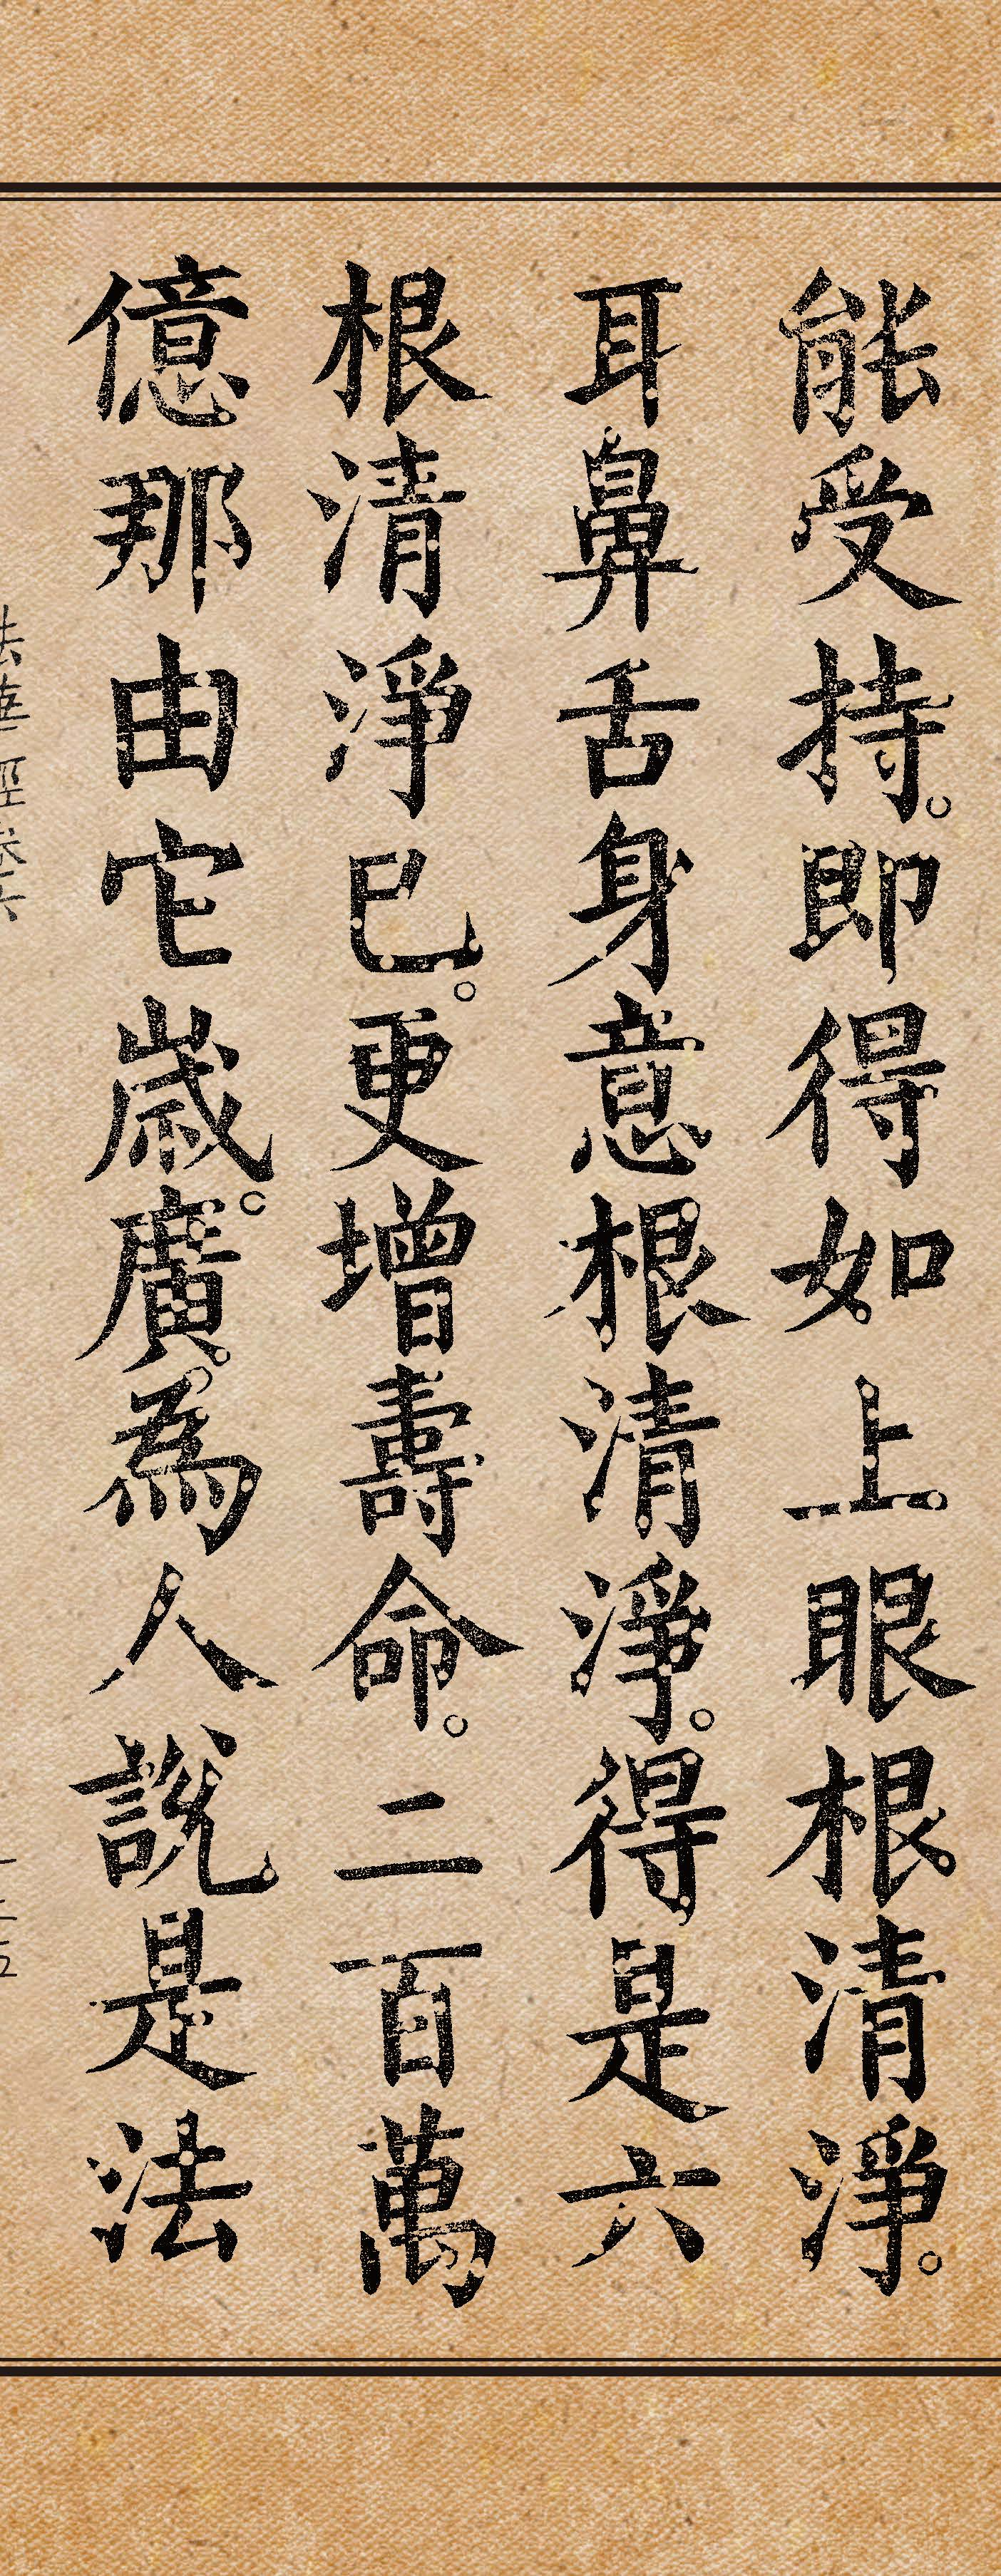 能受持。即得如上眼根清淨。
耳鼻舌身意根清淨。得是六
根清淨已。更增壽命。二百萬
億那由它歲。廣為人說是法